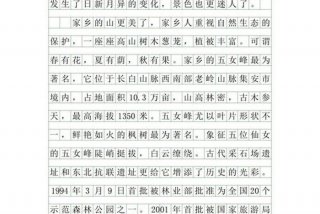 发生了日新月异的变化，景色也更迷人了。
家乡的山更美了，家乡人重视自然生态的
保护，一座座高山树木葱茏，植被丰富。可谓
春有花，夏有荫，秋有果。家乡的五女峰最为
著名，它位于长白山脉西南部老岭山脉集安市
境内，占地面积10.3万亩，山高林密，古木参
天，最高海拔1350米。五女峰尤以叶片形状不
一，鲜艳如火的枫树最为著名。象征五位仙女
的五女峰陡峭挺拔，白云缭绕。古代采石场遗
址和东北抗联遗址更给它增添了历史的光彩。
1994年3月9日首批被林业部批准为全国20个
示范森林公园之一。2001年首批被国家旅游局